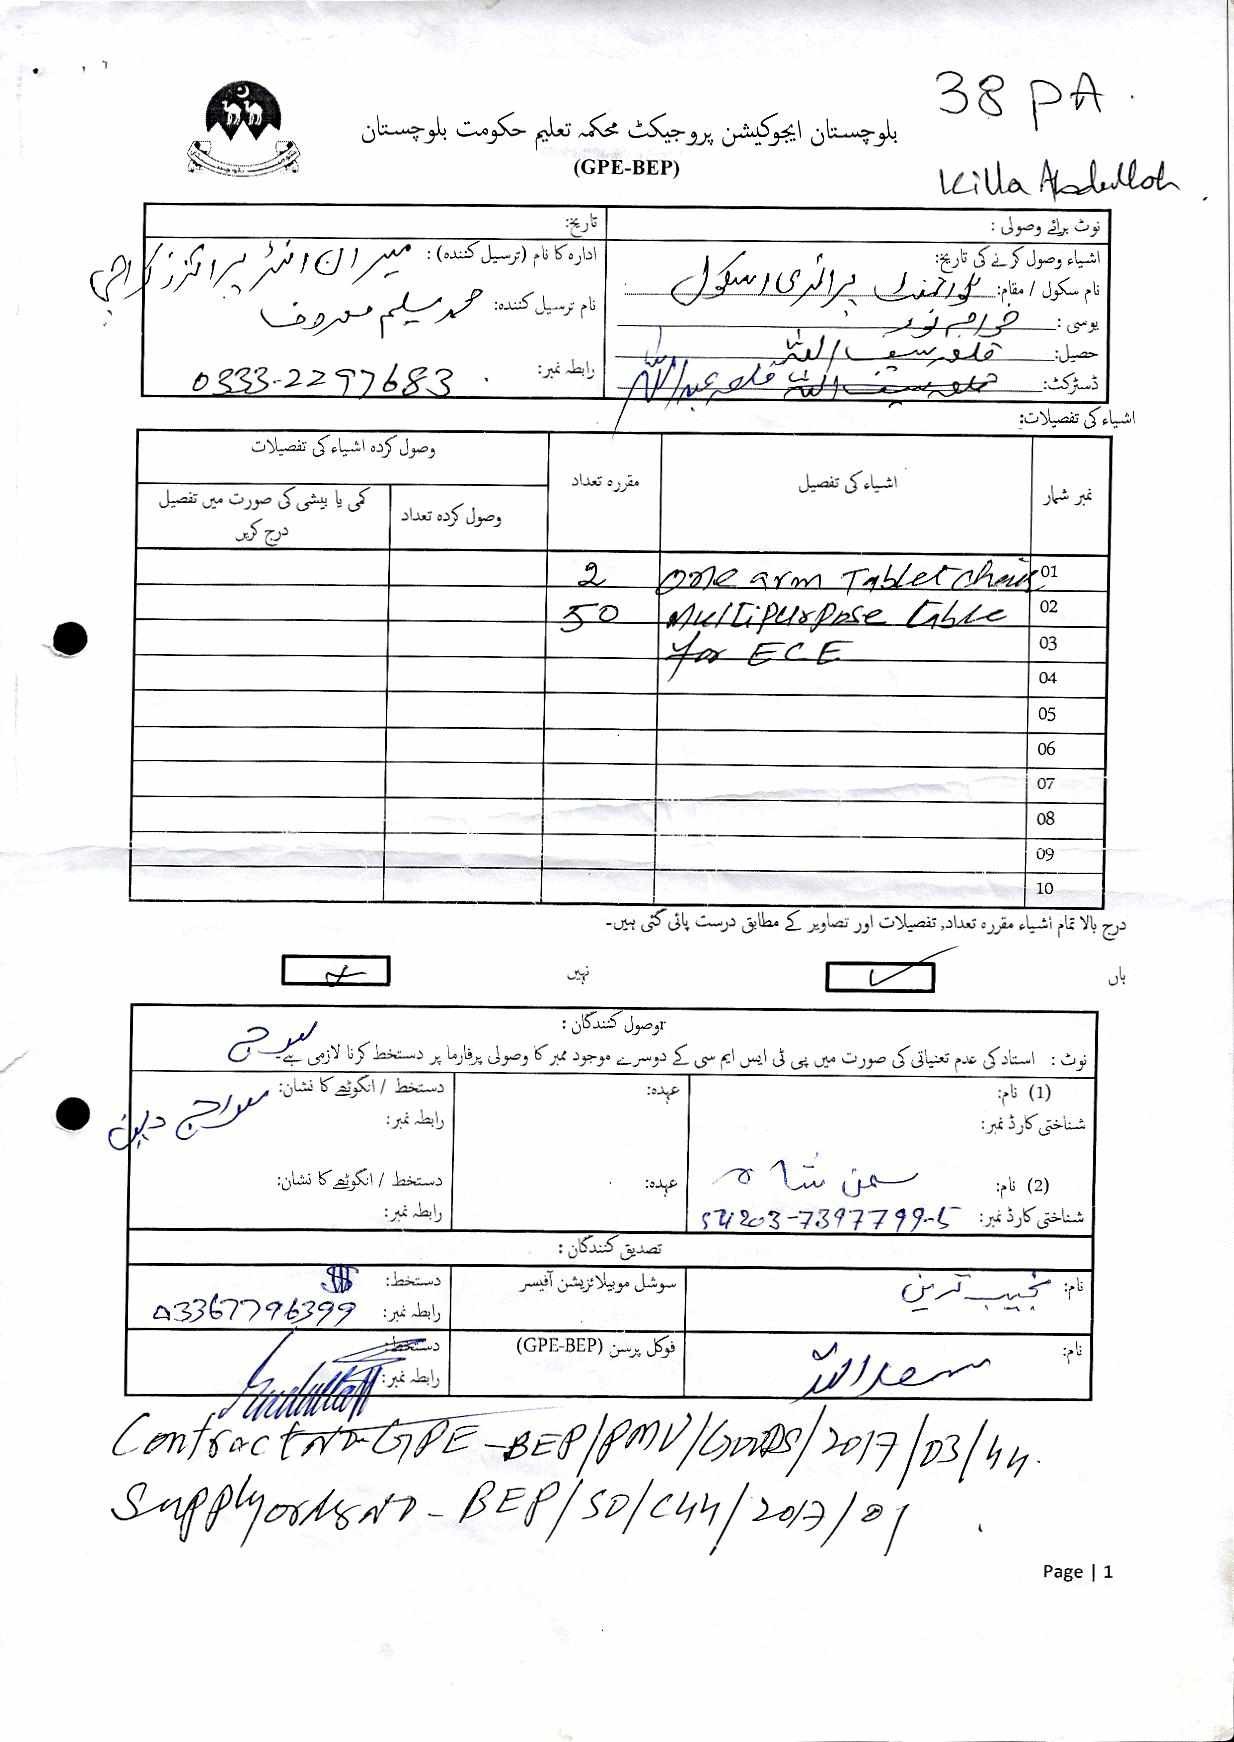 38 PA
بلوچستان ایجوکیشن پروجیکٹ محکمہ تعلیم حکومت بلوچستان
(GPE-BEP)
Killa Abdullah
نوٹ برائے وصولی :
تاریخ:
اشیاء وصول کرنے کی تاریخ:
ادارہ کا نام (ترسیل کنندہ) : میران انٹر پرائزز کراچی
نام سکول / مقام: گورنمنٹ پرائمری اسکول
نام ترسیل کنندہ: محمد سلیم معروف
یوسی :
حصیل: قلعہ سیف اللہ
رابطہ نمبر: 0333-2297683
ڈسڑکٹ: قلعہ سیف اللہ قلعہ عبداللہ
اشیاء کی تفصیلات:
نمبر شمار
اشیاء کی تفصیل
مقررہ تعداد
وصول کردہ اشیاء کی تفصیلات
وصول کردہ تعداد
کمی یا بیشی کی صورت میں تفصیل
درج کریں
01 one arm Tablet chair 2
02 Multipurpose table 50
03 for ECE
04
05
06
07
08
09
10
درج بالا تمام اشیاء مقررہ تعداد, تفصیلات اور تصاویر کے مطابق درست پائی گئی ہیں۔
ہاں
نہیں
وصول کنندگان :
نوٹ : استاد کی عدم تعیناتی کی صورت میں پی ٹی ایس ایم سی کے دوسرے موجود ممبر کا وصولی پرفارما پر دستخط کرنا لازمی ہے۔
(1) نام:
عہدہ:
دستخط / انگوٹھے کا نشان:
شناختی کارڈ نمبر:
رابطہ نمبر:
سراج دین
(2) نام: سمن شاہ
عہدہ:
دستخط / انگوٹھے کا نشان:
شناختی کارڈ نمبر: 54203-7397799-5
رابطہ نمبر:
تصدیق کنندگان :
نام: نجیب ترین
سوشل موبیلائزیشن آفیسر
دستخط:
رابطہ نمبر: 03367796399
نام: سعد اللہ
فوکل پرسن (GPE-BEP)
دستخط:
رابطہ نمبر:
Contract No-GPE-BEP/PMU/GOODS/2017/03/44.
Supply order NO-BEP/SO/C44/2017/01
Page | 1